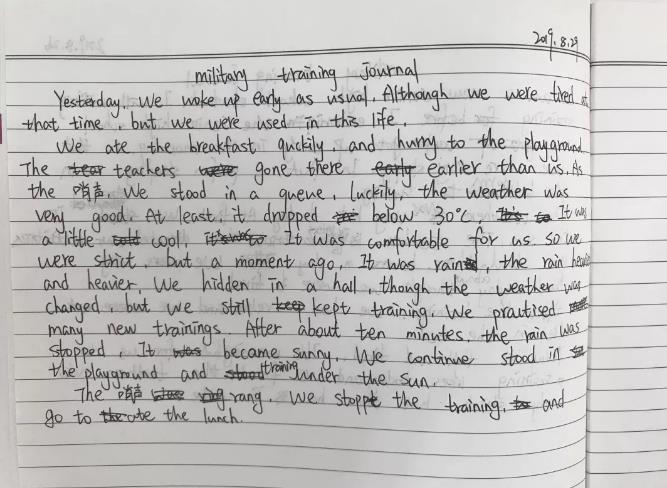 2019.8.29
military training journal
Yesterday. We woke up early as usual. Although we were tired at
that time, but we were used in this life.
We ate the breakfast quckily, and hurry to the playground
The tear teachers were gone there early earlier than us. As
the 哨声. We stood in a queue, luckily, the weather was
very good. At least, it dropped below 30℃ It's to It was
a little cold cool, it's was to It was comfortable for us. So we
were strict, but a moment ago, It was rained, the rain heavier
and heavier, We hidden in a hall, though the weather was
changed, but we still keep kept training. We practised
many new trainings. After about ten minutes, the rain was
stopped, It was became sunny. We continue stood in
the playground and stood training under the sun.
The 哨声 ring rang. We stoppe the training, to and
go to the ate the lunch.